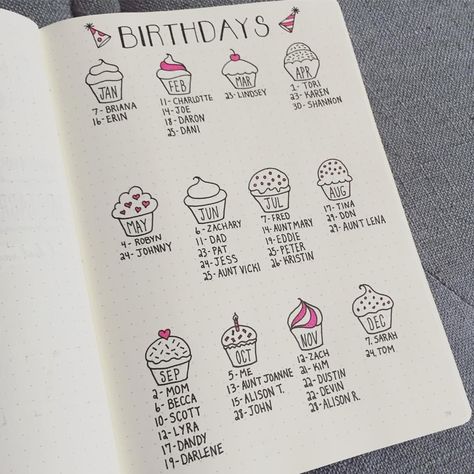 BIRTHDAYS
JAN
7- BRIANA
16- ERIN
FEB
11- CHARLOTTE
14- JOE
18- DARON
25- DANI
MAR
23- LINDSEY
APR
1- TORI
23- KAREN
30- SHANNON
MAY
4- ROBYN
24- JOHNNY
JUN
6- ZACHARY
11- DAD
23- PAT
24- JESS
25- AUNT VICKI
JUL
7- FRED
14- AUNT MARY
19- EDDIE
25- PETER
26- KRISTIN
AUG
17- TINA
29- DON
29- AUNT LENA
SEP
2- MOM
6- BECCA
10- SCOTT
12- LYRA
17- DANDY
19- DARLENE
OCT
5- ME
13- AUNT JOANNE
15- ALISON T.
28- JOHN
NOV
12- ZACH
21- KIM
22- DUSTIN
22- DEVIN
28- ALISON R.
DEC
7- SARAH
24- TOM